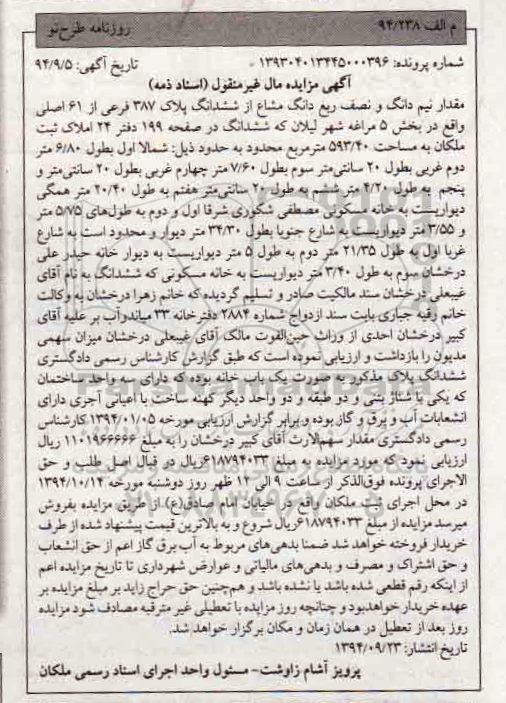 م الف ۹۴/۲۳۸
روزنامه طرح نو
شماره پرونده: ۱۳۹۳۰۴۰۱۳۴۴۵۰۰۰۳۹۶ تاریخ آگهی: ۹۴/۹/۵
آگهی مزایده مال غیرمنقول (اسناد ذمه)
مقدار نیم دانگ و نصف ربع دانگ مشاع از ششدانگ پلاک ۳۸۷ فرعی از ۶۱ اصلی
واقع در بخش ۵ مراغه شهر لیلان که ششدانگ در صفحه ۱۹۹ دفتر ۲۴ املاک ثبت
ملکان به مساحت ۵۹۳/۴۰ مترمربع محدود به حدود ذیل: شمالا اول بطول ۶/۸۰ متر
دوم غربی بطول ۲۰ سانتی‌متر سوم بطول ۷/۶۰ متر چهارم غربی بطول ۲۰ سانتی‌متر و
پنجم به طول ۴/۲۰ متر ششم به طول ۲۰ سانتی‌متر هفتم به طول ۲۰/۴۰ متر همگی
دیواریست به خانه مسکونی مصطفی شکوری شرقا اول و دوم به طول‌های ۵/۷۵ متر
و ۳/۵۵ متر دیواریست به شارع جنوبا بطول ۳۴/۳۰ متر دیوار و محدود است به شارع
غربا اول به طول ۲۱/۳۵ متر دوم به طول ۵ متر دیواریست به دیوار خانه حیدر علی
درخشان سوم به طول ۳/۴۰ متر دیواریست به خانه مسکونی که ششدانگ به نام آقای
غیبعلی درخشان سند مالکیت صادر و تسلیم گردیده که خانم زهرا درخشان به وکالت
خانم رقیه جباری بابت سند ازدواج شماره ۲۸۸۴ دفترخانه ۳۳ میاندوآب بر علیه آقای
کبیر درخشان احدی از وراث حین‌الفوت مالک آقای غیبعلی درخشان میزان سهمی
مدیون را بازداشت و ارزیابی نموده است که طبق گزارش کارشناس رسمی دادگستری
ششدانگ پلاک مذکور به صورت یک باب خانه بوده که دارای سه واحد ساختمان
که یکی با شناژ بتنی و دو طبقه و دو واحد دیگر کهنه ساخت با اعیانی آجری دارای
انشعابات آب و برق و گاز بوده و برابر گزارش ارزیابی مورخه ۱۳۹۴/۰۱/۰۵ کارشناس
رسمی دادگستری مقدار سهم‌الارث آقای کبیر درخشان را به مبلغ ۱۱۰۱۹۶۶۶۶۶ ریال
ارزیابی نمود که مورد مزایده به مبلغ ۶۱۸۷۹۴۰۳۳ریال در قبال اصل طلب و حق
الاجرای پرونده فوق‌الذکر از ساعت ۹ الی ۱۲ ظهر روز دوشنبه مورخه ۱۳۹۴/۱۰/۱۴
در محل اجرای ثبت ملکان واقع در خیابان امام صادق(ع) از طریق مزایده بفروش
میرسد مزایده از مبلغ ۶۱۸۷۹۴۰۳۳ریال شروع و به بالاترین قیمت پیشنهاد شده از طرف
خریدار فروخته خواهد شد ضمنا بدهی‌های مربوط به آب برق گاز اعم از حق انشعاب
و حق اشتراک و مصرف و بدهی‌های مالیاتی و عوارض شهرداری تا تاریخ مزایده اعم
از اینکه رقم قطعی شده باشد یا نشده باشد و هم‌چنین حق حراج زاید بر مبلغ مزایده بر
عهده خریدار خواهدبود و چنانچه روز مزایده با تعطیلی غیر مترقبه مصادف شود مزایده
روز بعد از تعطیل در همان زمان و مکان برگزار خواهد شد.
تاریخ انتشار: ۱۳۹۴/۰۹/۲۳
پرویز آشام زاوشت- مسئول واحد اجرای اسناد رسمی ملکان